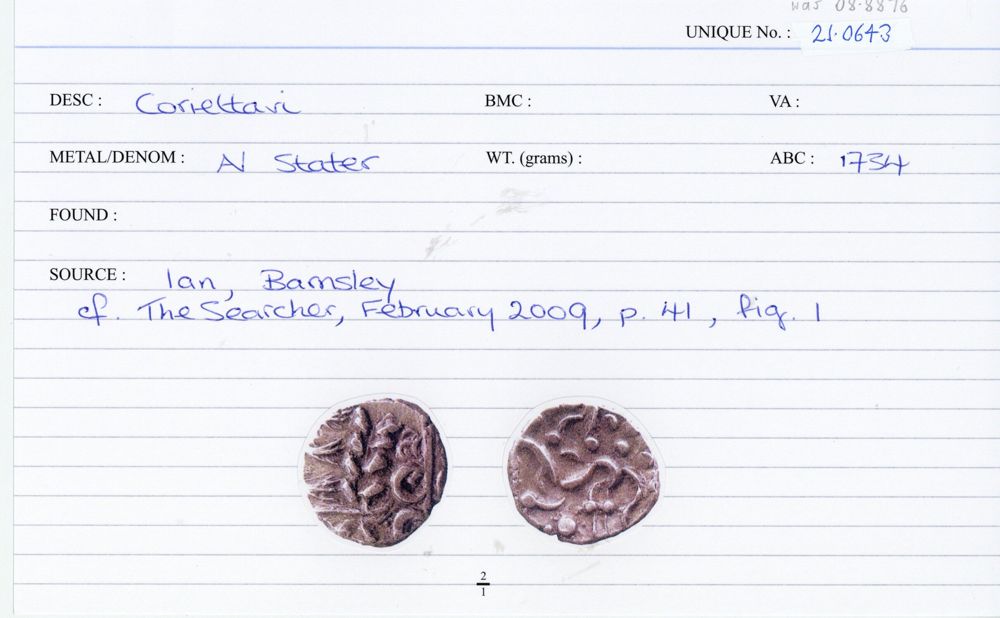 was 08.8876
UNIQUE No. : 21.0643
DESC : Corieltavi BMC : VA :
METAL/DENOM : AV Stater WT. (grams) : ABC : 1734
FOUND :
SOURCE : Ian, Barnsley
cf. The Searcher, February 2009, p. 41, fig. 1
2
1